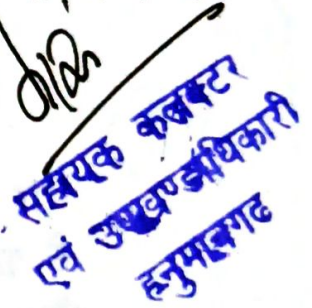 सहायक कलक्टर
एवं उपखण्डअधिकारी
हनुमानगढ